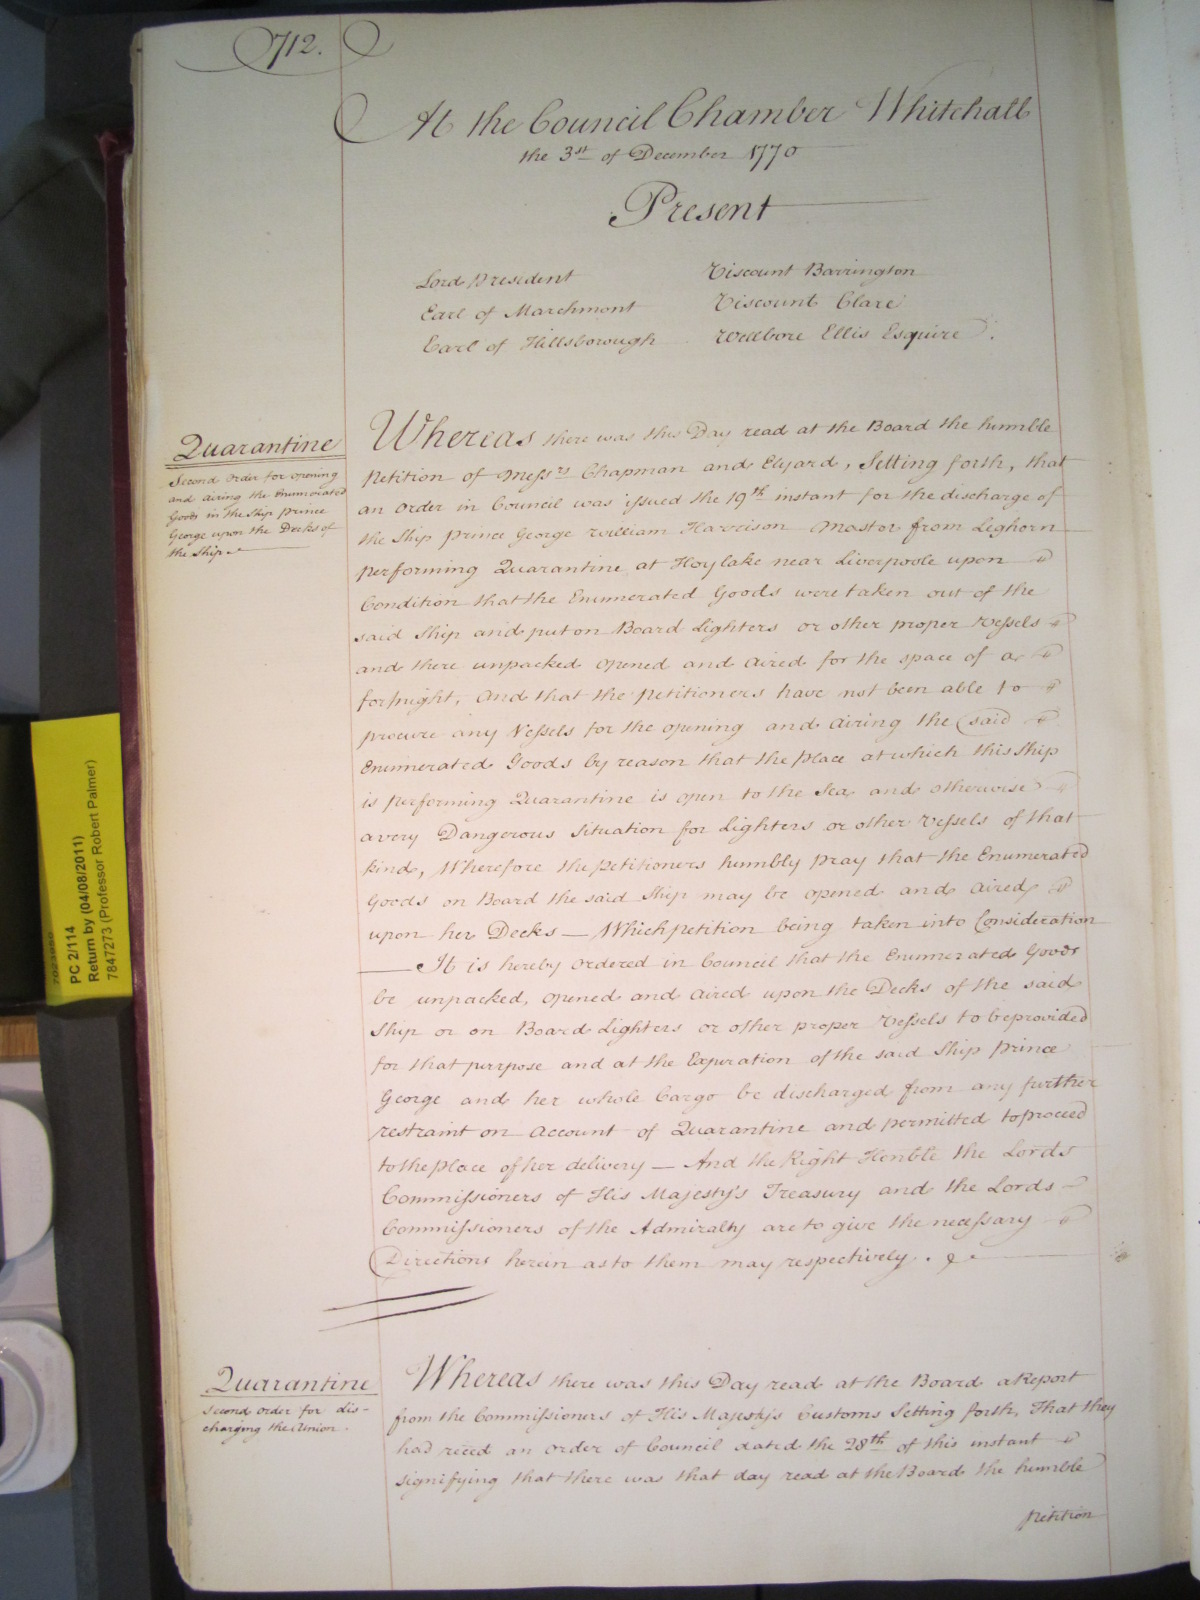 712.
At the Council Chamber Whitehall
the 3st of December 1770
Present
Lord President
Earl of Marchmont
Earl of Hillsborough
Viscount Barrington
Viscount Clare
Wellbore Ellis Esquire.
Quarantine
Second Order for opening
and airing the Enumerated
Goods in the Ship Prince
George upon the Decks of
the Ship
Whereas there was this Day read at the Board the humble
Petition of Messrs Chapman and Elyard, Setting forth, that
an Order in Council was issued the 19th instant for the discharge of
the Ship Prince George William Harrison Master from Leghorn
performing Quarantine at Hoylake near Liverpoole upon
Condition that the Enumerated Goods were taken out of the
said Ship and put on Board Lighters or other proper Vessels
and there unpacked opened and aired for the space of a
fortnight, and that the Petitioners have not been able to
procure any Vessels for the opening and airing the said
Enumerated Goods by reason that the Place at which this Ship
is performing Quarantine is open to the Sea and otherwise
a very Dangerous Situation for Lighters or other Vessels of that
kind, Wherefore the Petitioners humbly pray that the Enumerated
Goods on Board the said Ship may be opened and aired
upon her Decks — Which petition being taken into Consideration
— It is hereby ordered in Council that the Enumerated Goods
be unpacked, opened and aired upon the Decks of the said
Ship or on Board Lighters or other proper Vessels to be provided
for that purpose and at the Expiration of the said Ship Prince
George and her whole Cargo be discharged from any further
restraint on Account of Quarantine and permitted to proceed
to the Place of her delivery — And the Right Honble the Lords
Commissioners of His Majesty's Treasury and the Lords
Commissioners of the Admiralty are to give the necessary
Directions herein as to them may respectively.
Quarantine
Second order for dis-
charging the Union.
Whereas there was this Day read at the Board a Report
from the Commissioners of His Majesty's Customs Setting forth, That they
had reced an Order of Council dated the 28th of this instant
signifying that there was that day read at the Board the humble
Petition
PC 2/114
Return by (04/08/2011)
7847273 (Professor Robert Palmer)